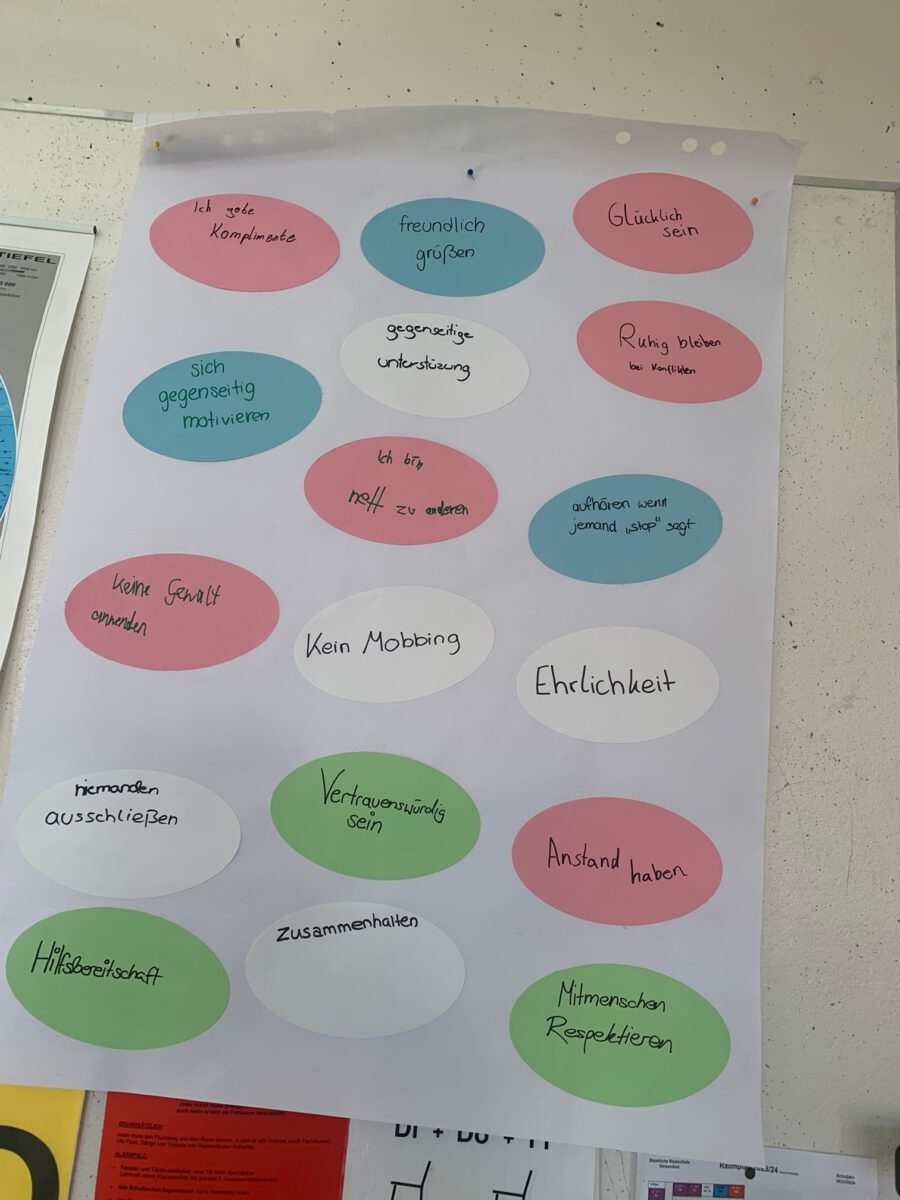 Ich gebe
Komplimente
freundlich
grüßen
Glücklich
sein
gegenseitige
unterstüzung
Ruhig bleiben
bei Konflikten
sich
gegenseitig
motivieren
Ich bin
nett zu anderen
aufhören wenn
jemand „stop“ sagt
Keine Gewalt
anwenden
Kein Mobbing
Ehrlichkeit
niemanden
ausschließen
Vertrauenswürdig
sein
Anstand haben
Hilfsbereitschaft
zusammenhalten
Mitmenschen
Respektieren
TIEFEL
GRUNDSÄTZLICH
ALARMFALL:
Di + Do + Fr
Staatliche Realschule
Raumplan 2023/24
Schuljahr
2023/2024